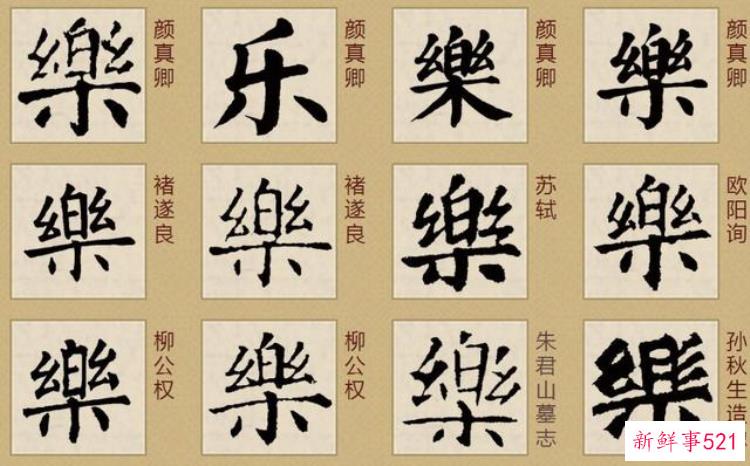 樂 颜真卿 乐 颜真卿 樂 颜真卿 樂 颜真卿
樂 褚遂良 樂 褚遂良 樂 苏轼 樂 欧阳询
樂 柳公权 樂 柳公权 樂 朱君山墓志 樂 孙秋生造
新鲜事521